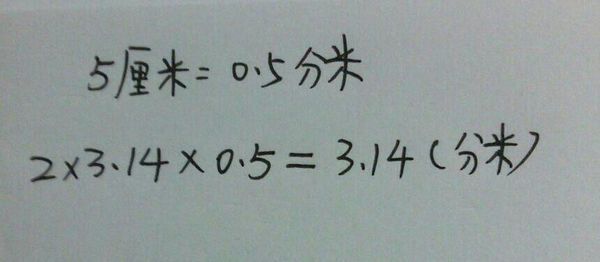 5厘米=0.5分米
2×3.14×0.5=3.14(分米)